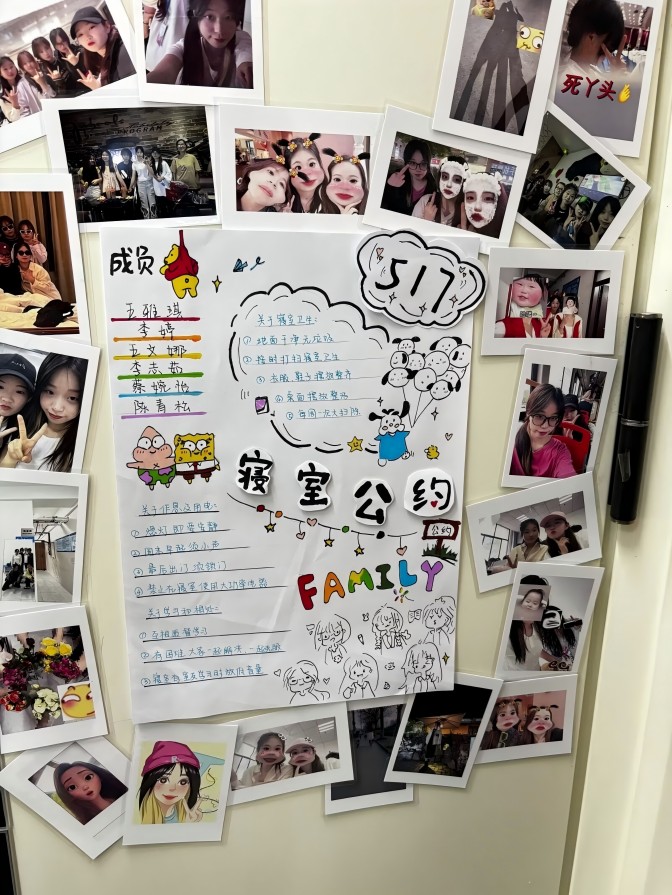 死丫头
PROGRAM
成员
517
王雅琪
李婷
王文娜
李志茹
蔡婉怡
陈青松
关于寝室卫生:
① 地面干净无垃圾
② 按时打扫寝室卫生
③ 衣服、鞋子摆放整齐
④ 桌面摆放整洁
⑤ 每周一次大扫除
寝室公约
公约
关于作息及用电:
① 熄灯即要安静
② 周末早起须小声
③ 最后出门须锁门
④ 禁止在寝室使用大功率电器
关于学习和相处:
① 互相监督学习
② 有困难大家一起解决,一起
③ 寝室有室友在午时放低音量
FAMILY